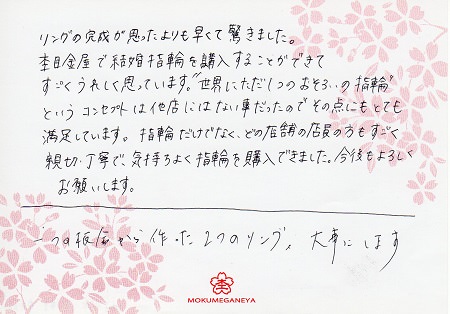 リングの完成が思ったよりも早くて驚きました。
杢目金屋で結婚指輪を購入することができて
すごくうれしく思っています。"世界にただ1つのおそろいの指輪"
というコンセプトは他店にはない事だったのでその点にもとても
満足しています。指輪だけでなく、どの店舗の店員の方もすごく
親切、丁寧で、気持ちよく指輪を購入できました。今後もよろしく
お願いします。
一つの板金から作った2つのリング、大事にします
杢
MOKUMEGANEYA